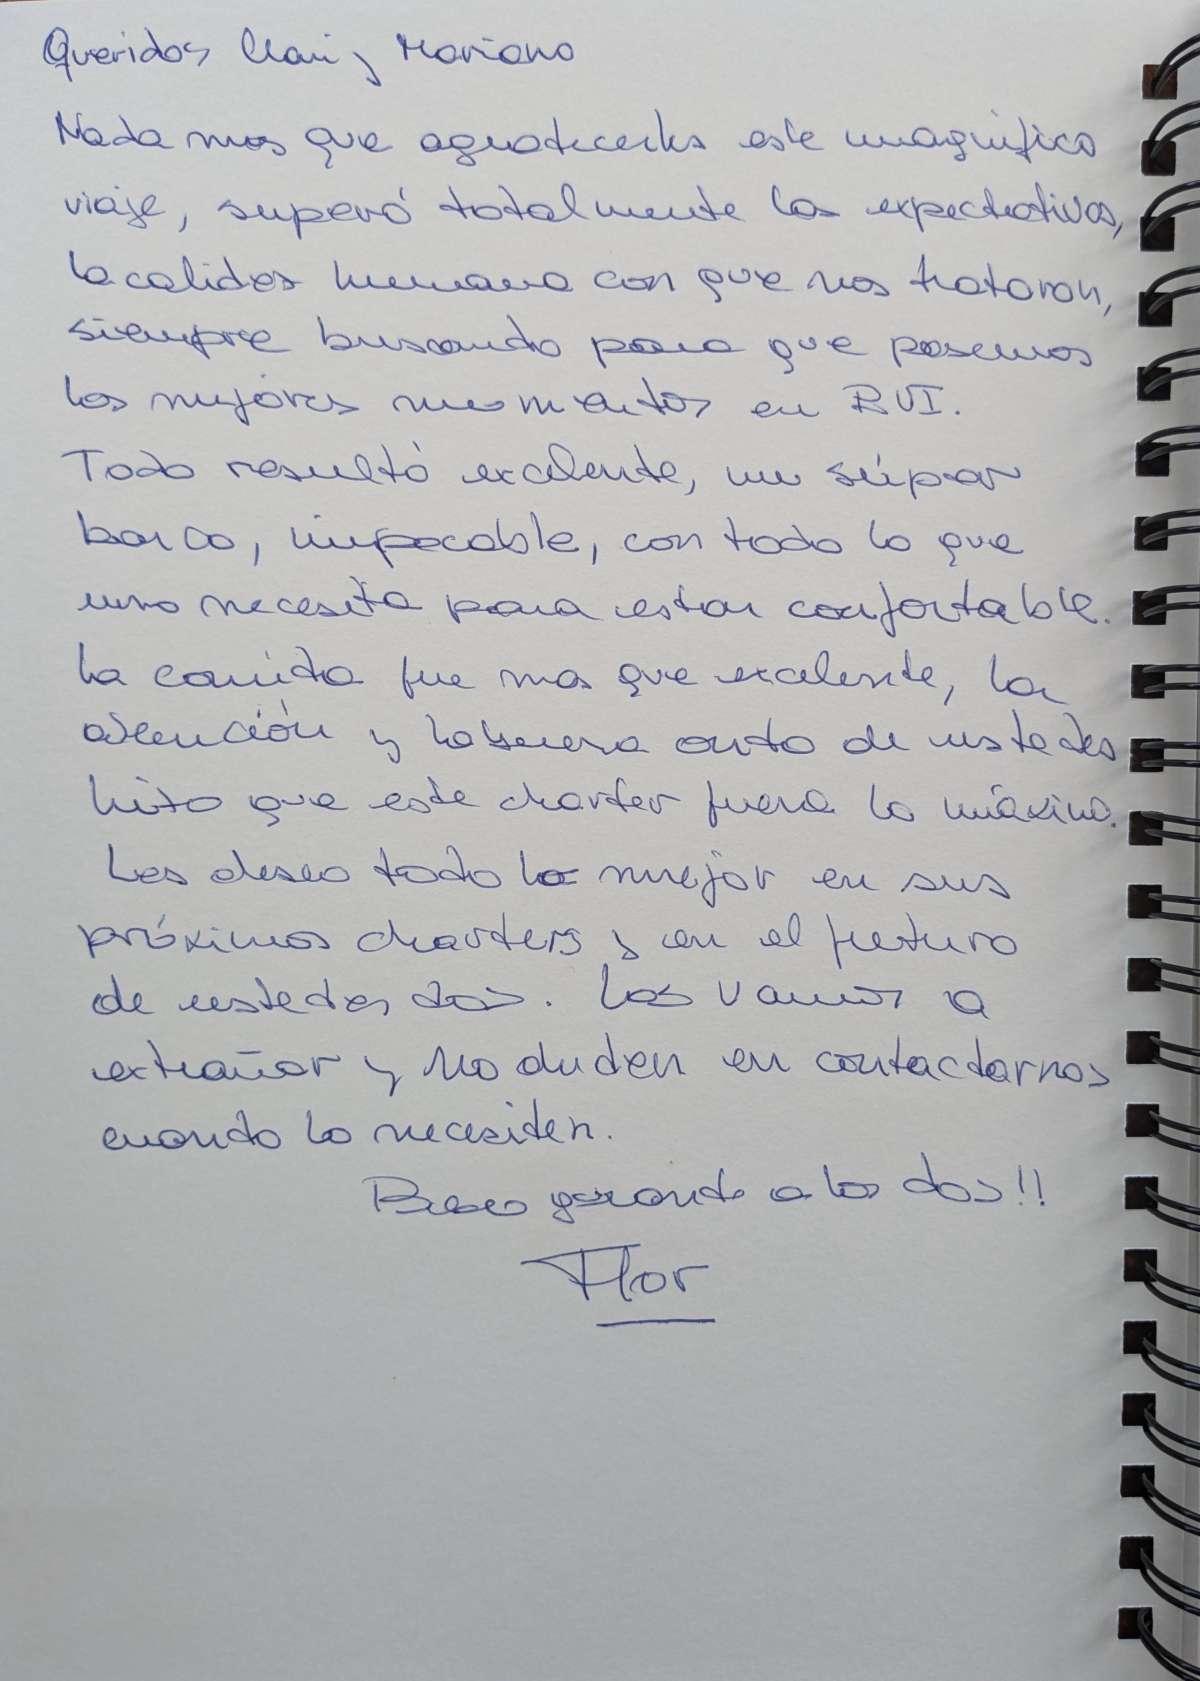 Queridos Mari y Mariano
Nada mas que agradecerles este magnífico
viaje, superó totalmente las expectativas,
la calidez humana con que nos trataron,
siempre buscando para que pasemos
los mejores momentos en BVI.
Todo resultó excelente, un súper
barco, impecable, con todo lo que
uno necesita para estar confortable.
La comida fue mas que excelente, la
atención y la buena onda de ustedes
hizo que este charter fuera lo máximo.
Les deseo todo lo mejor en sus
próximos charters y en el futuro
de ustedes dos. Los vamos a
extrañar y no duden en contactarnos
cuando lo necesiten.
Beso grande a los dos!!
Flor